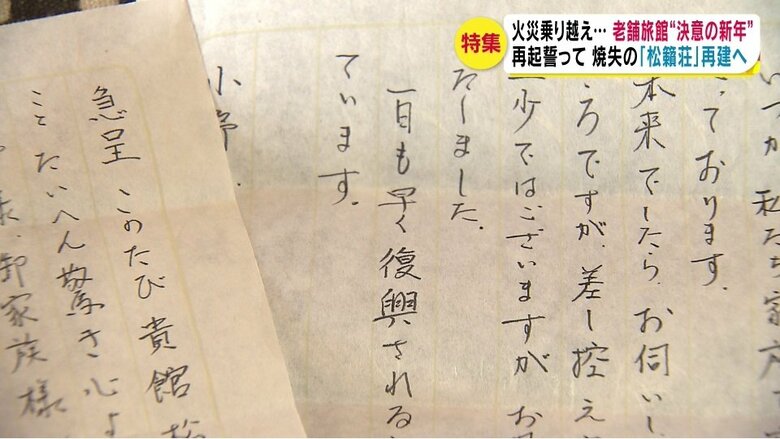 特集
火災乗り越え… 老舗旅館“決意の新年”
再起誓って 焼失の「松籟荘」再建へ
いつか私たち家
っております。
本来でしたら、お伺いし
ろですが、差し控え
少ではございますが お
たしました。
一日も早く復興される
ています。
急呈 このたび貴館松
ことたいへん驚き心よ
様、御家族様